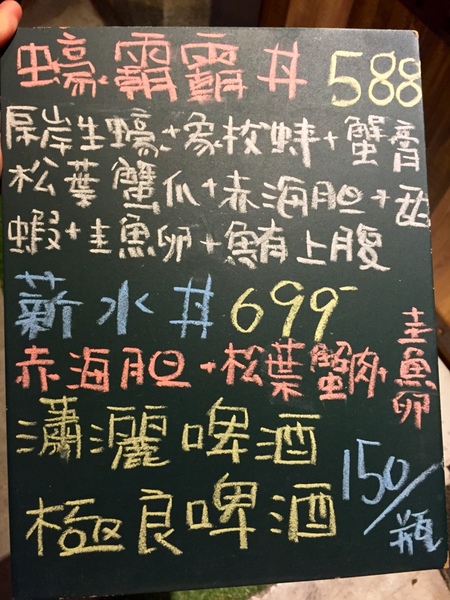 蠔霸霸丼 588
厚岸生蠔+象拔蚌+蟹膏
松葉蟹爪+赤海胆+
蝦+圭魚卵+鮪上腹
薪水丼 699
赤海胆+松葉蟹肉+圭魚卵
瀟灑啤酒
極良啤酒 150/瓶